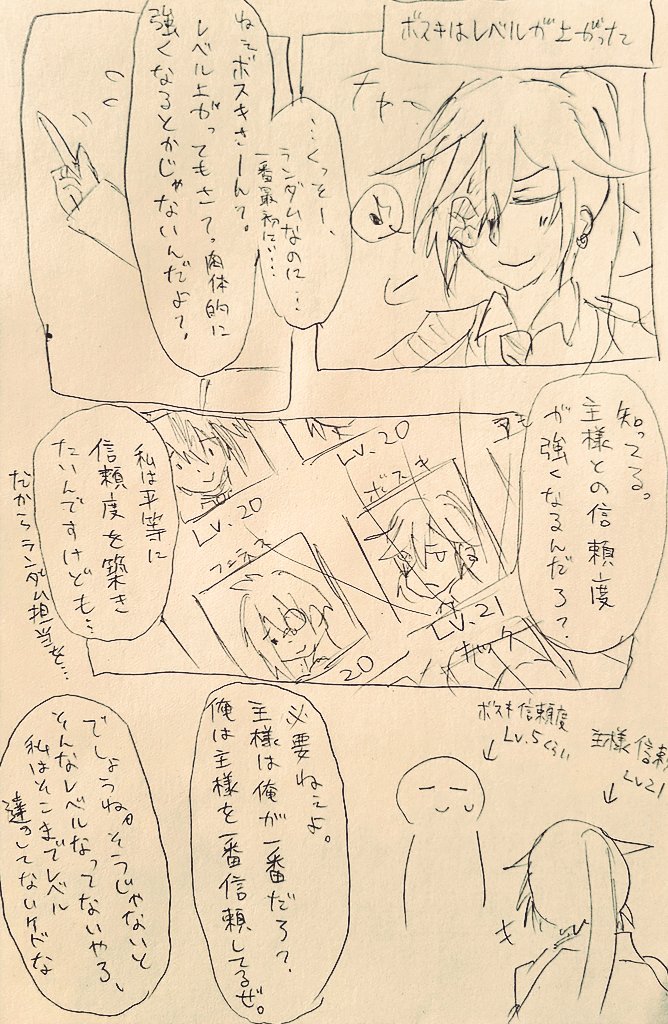 ボスキはレベルが上がった
チャー
ン
…くっそー、
ランダムなのに…
一番最初に…
ねてボスキさーんて。
レベル上がってもさて。肉体的に
強くなるとかじゃないんだよ?
知ってる。
主様との信頼度
が強くなるんだろ?
Lv.20
Lv.20
ボスキ
Lv.21
フェネス
20
私は平等に
信頼度を築き
たいんですけども…
だからランダム担当を…
ボスキ信頼度
Lv.5くらい
主様信頼
Lv21
必要ねぇよ。
主様は俺が一番だろ?
俺は主様を一番信頼してるぜ。
キ
でしょうね。そうじゃないと
そんなレベルなってないやろ、
私はそこまでレベル
達してないけどな